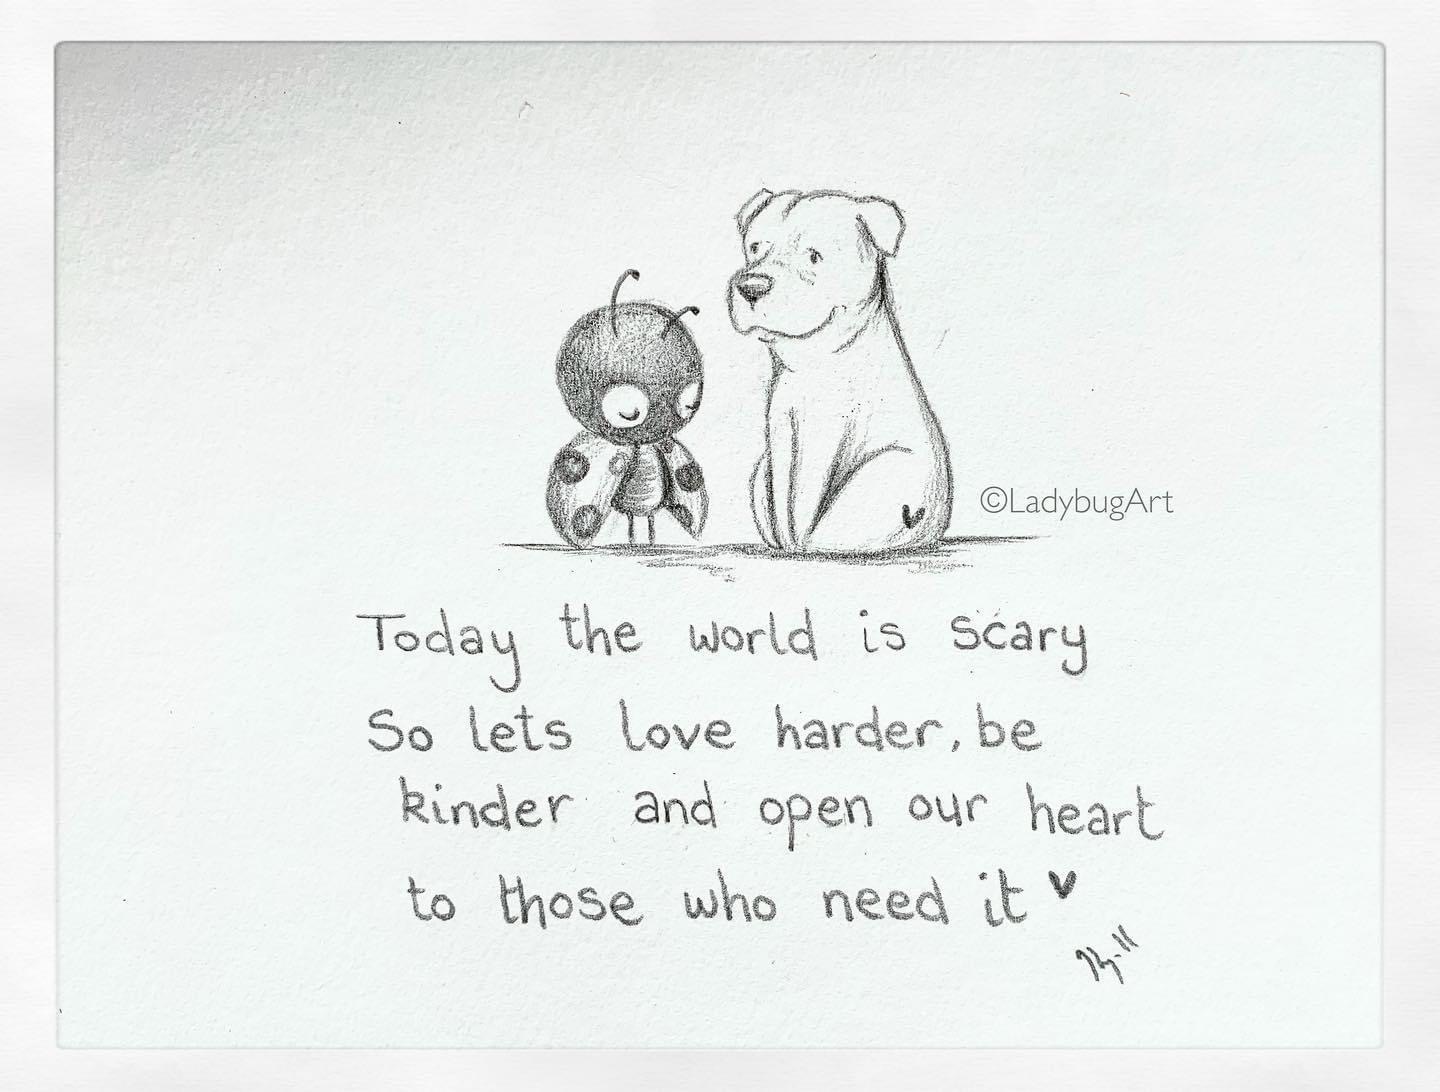 ©LadybugArt
Today the world is scary
So lets love harder, be
kinder and open our heart
to those who need it